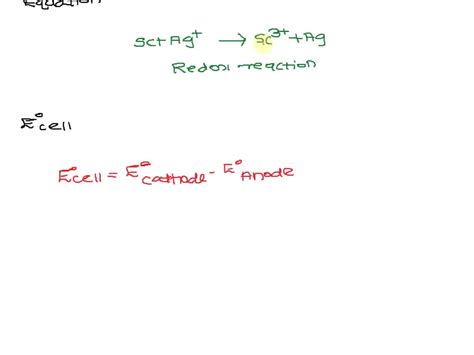 Equation
Sc+Ag⁺ → Sc³⁺+Ag
Redox reaction
E°cell
E°cell = E°cathode - E°Anode